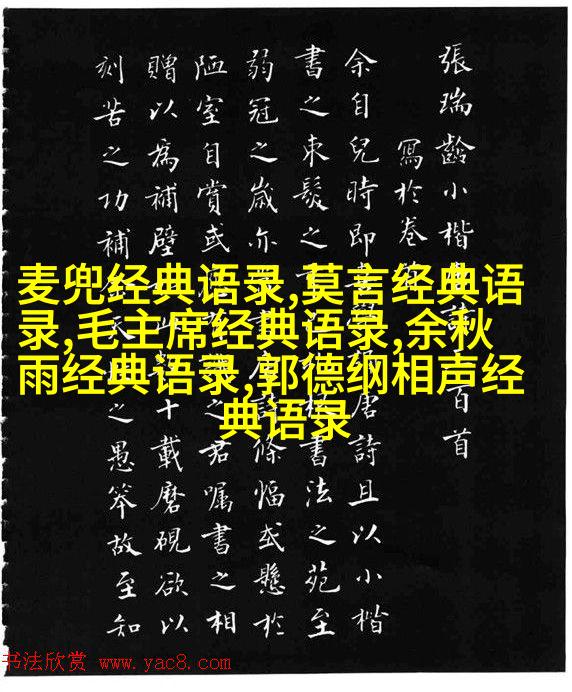 張瑞齡小楷百首
寫於卷
余自兒時即唐詩且以小楷
書之束髮之書法之苑至
弱冠之歲亦條幅或懸於
陋室自賞或之君囑書之相
贈以為補壁十載磨硯欲以
刻苦之功補之愚笨故至知
麦兜经典语录,莫言经典语
录,毛主席经典语录,余秋
雨经典语录,郭德纲相声经
典语录
书法欣赏 www.yac8.com